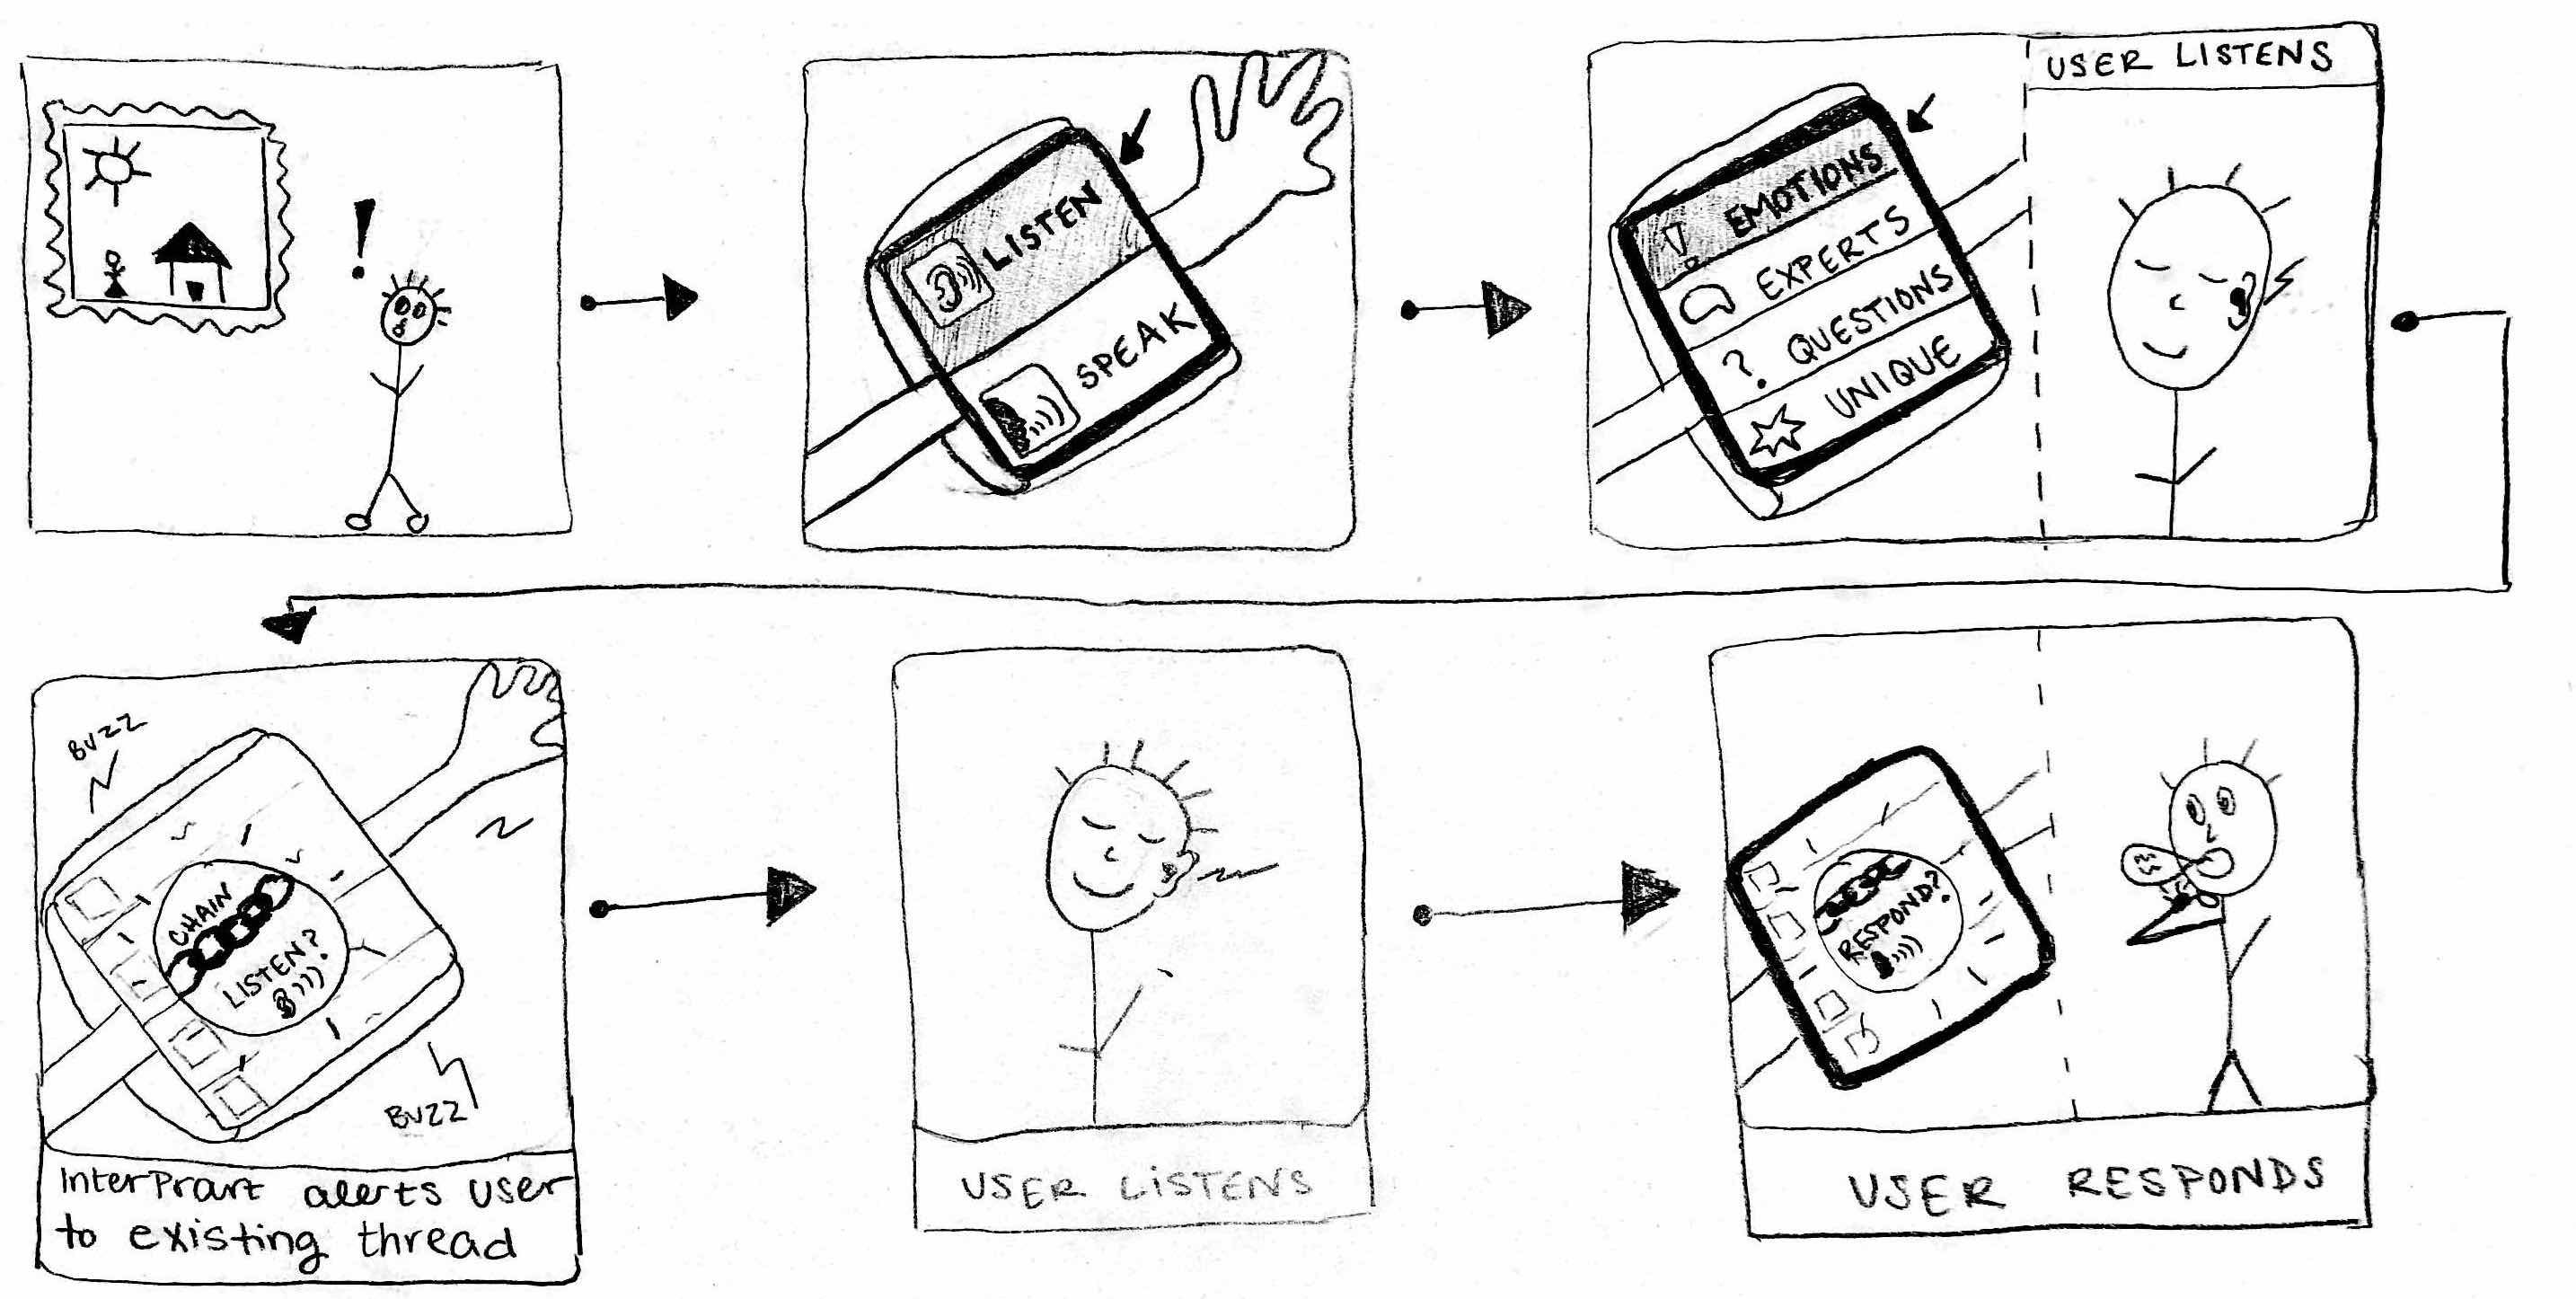 !
LISTEN
SPEAK
USER LISTENS
! EMOTIONS
EXPERTS
? QUESTIONS
UNIQUE
BUZZ
CHAIN
LISTEN?
BUZZ
InterPrart alerts user
to existing thread
USER LISTENS
RESPOND?
USER RESPONDS